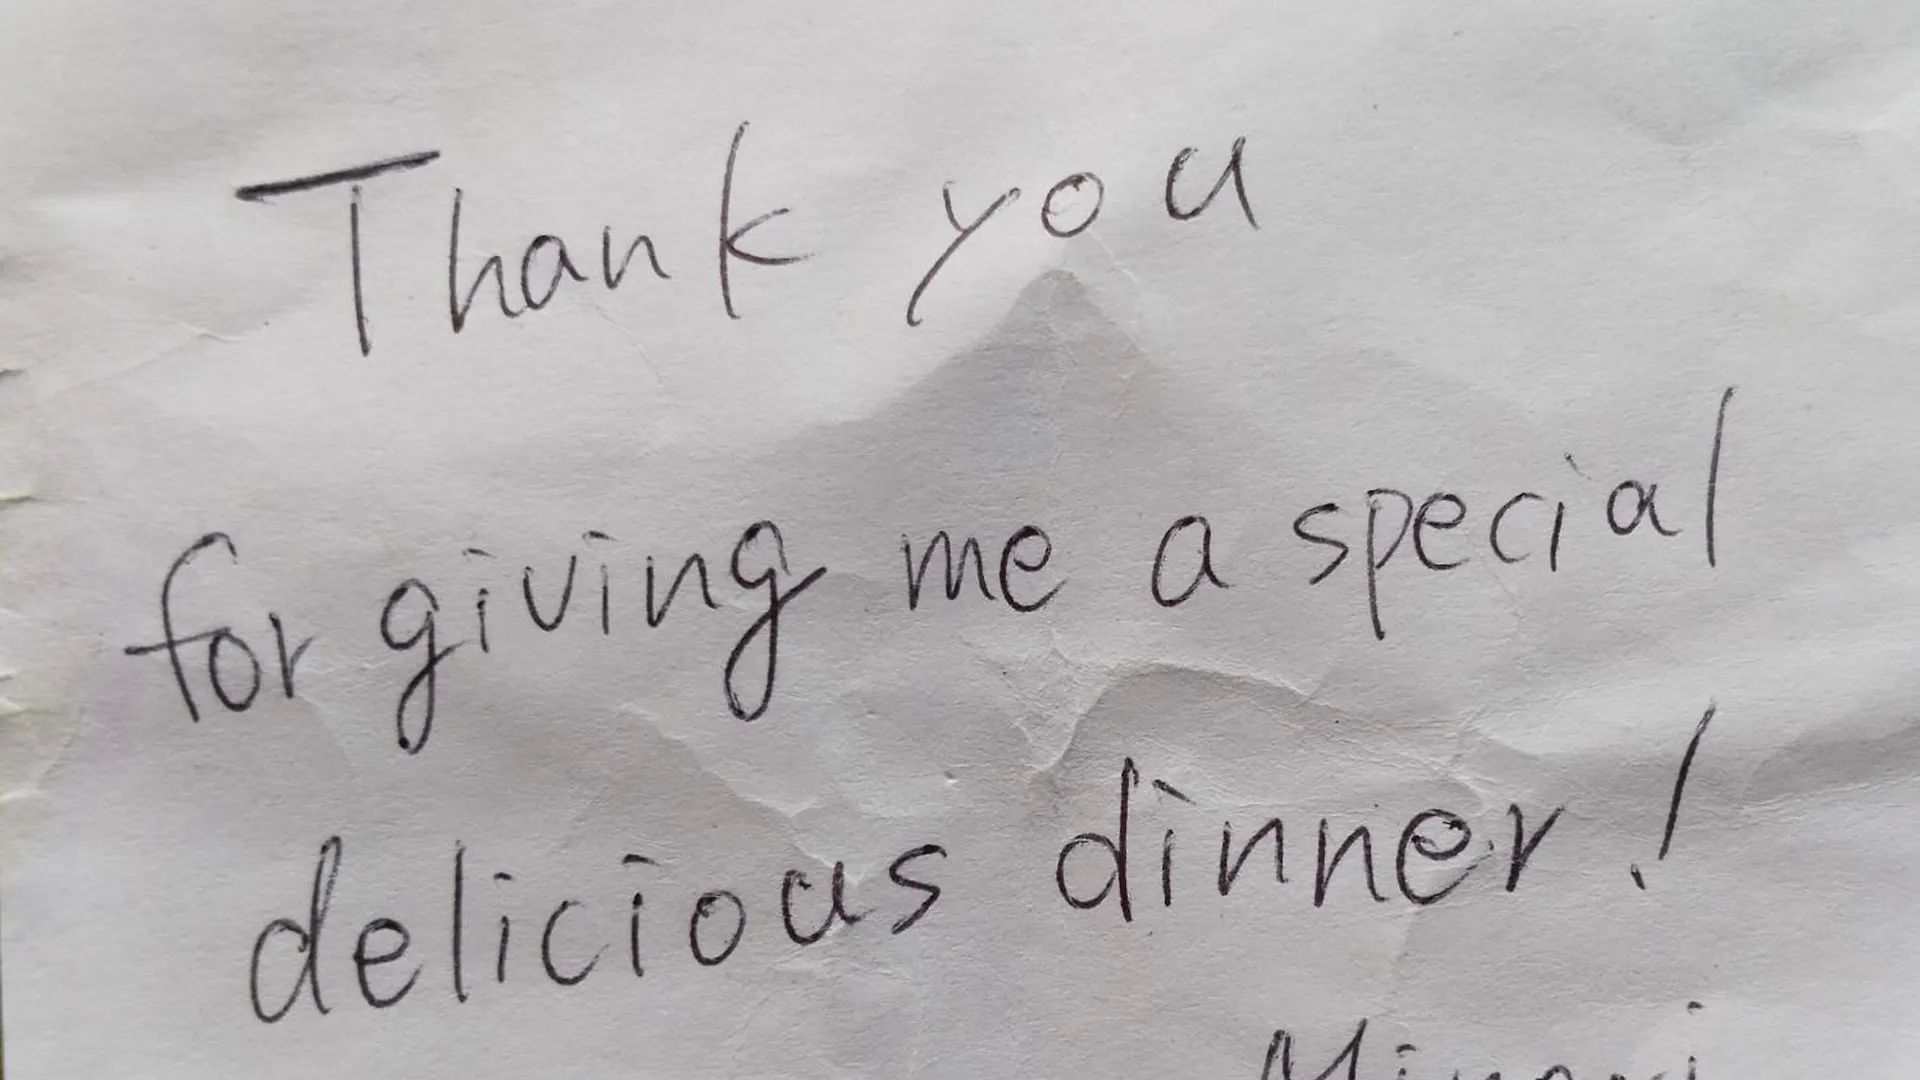 Thank you
for giving me a special
delicious dinner!